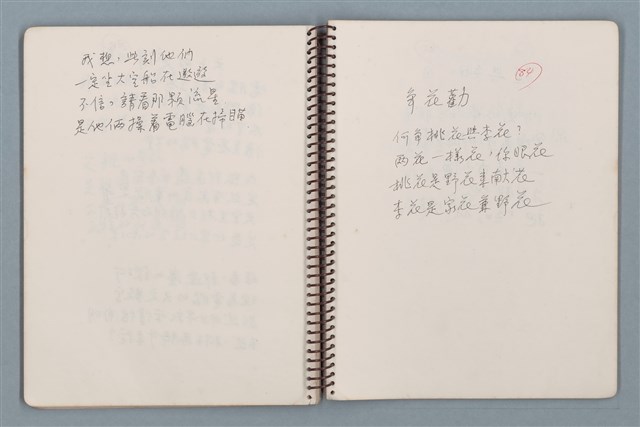 我想，些刻他們
一定坐太空船在遨遊
不信？請看那顆流星
是他倆擦着電腦在掃瞄
84
爭花勸
何爭桃花與李花？
兩花一樣花，你眼花
桃花是野花兼開花
李花是家花兼野花